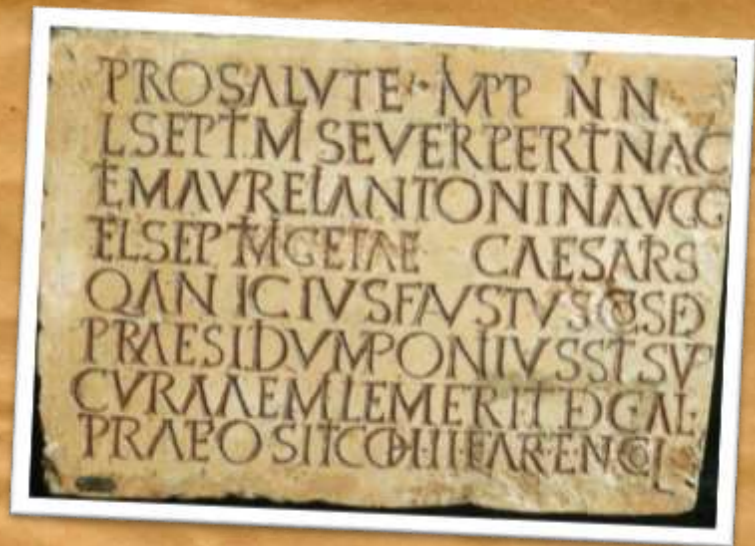 PROSALVTE·IMPP NN
LSEPTIM SEVERPERTINAC
ETMAVRELANTONINAVGG
ETLSEPTIMGETAE CAESARIS
QANICIVSFAVSTVSCOSD
PRAESIDIVMPONIVSSITSVP
CVRAAEMILEMERITIDECAL
PRAEPOSITCOHIIIFARENCOL